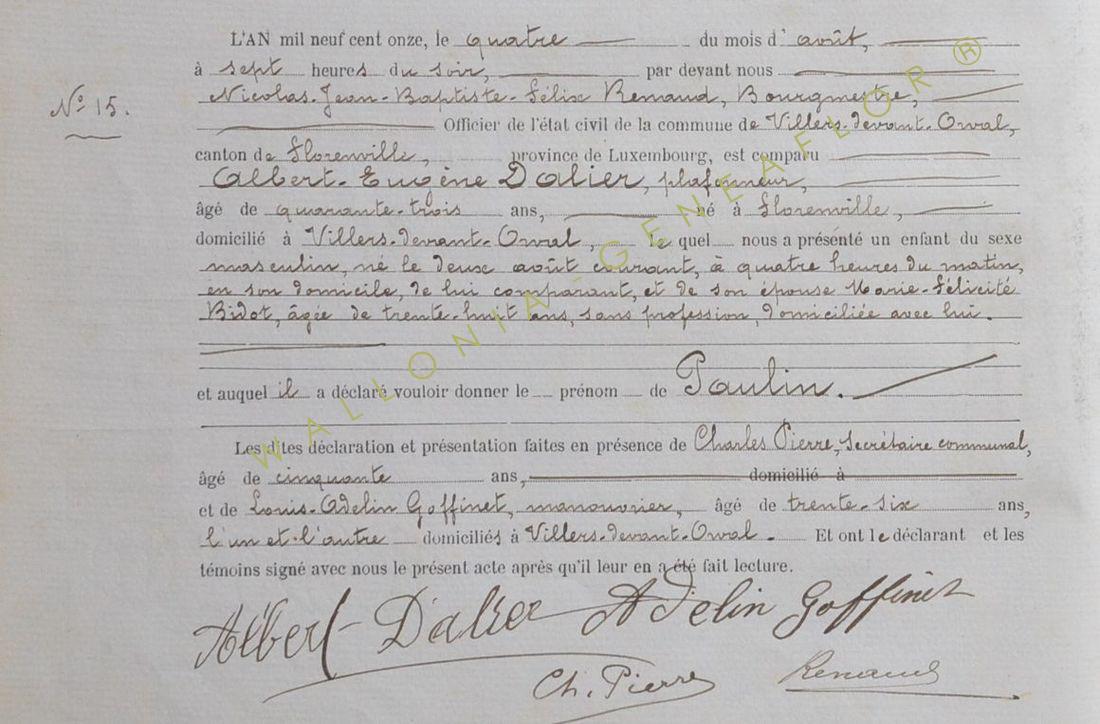 L'AN mil neuf cent onze, le quatre du mois d'août,
à sept heures du soir, par devant nous
Nicolas-Jean-Baptiste-Félix Renaud, Bourgmestre,
Nº 15.
Officier de l'état civil de la commune de Villers-devant-Orval,
canton de Florenville, province de Luxembourg, est comparu
Albert-Eugène Dalier, plafonneur,
âgé de quarante-trois ans, né à Florenville,
domicilié à Villers-devant-Orval, lequel nous a présenté un enfant du sexe
masculin, né le deux août courant, à quatre heures du matin,
en son domicile, de lui comparant, et de son épouse Marie-Félicité
Bidot, âgée de trente-huit ans, sans profession, domiciliée avec lui.
et auquel il a déclaré vouloir donner le prénom de Paulin.
Les dites déclaration et présentation faites en présence de Charles Pierre, Secrétaire communal,
âgé de cinquante ans, domicilié à
et de Louis-Adelin Goffinet, manouvrier, âgé de trente-six ans,
l'un et l'autre domiciliés à Villers-devant-Orval. Et ont le déclarant et les
témoins signé avec nous le présent acte après qu'il leur en a été fait lecture.
Albert Dalier Adelin Goffinet
Ch. Pierre Renaud
WALLONIA-GENEAFLOR ®